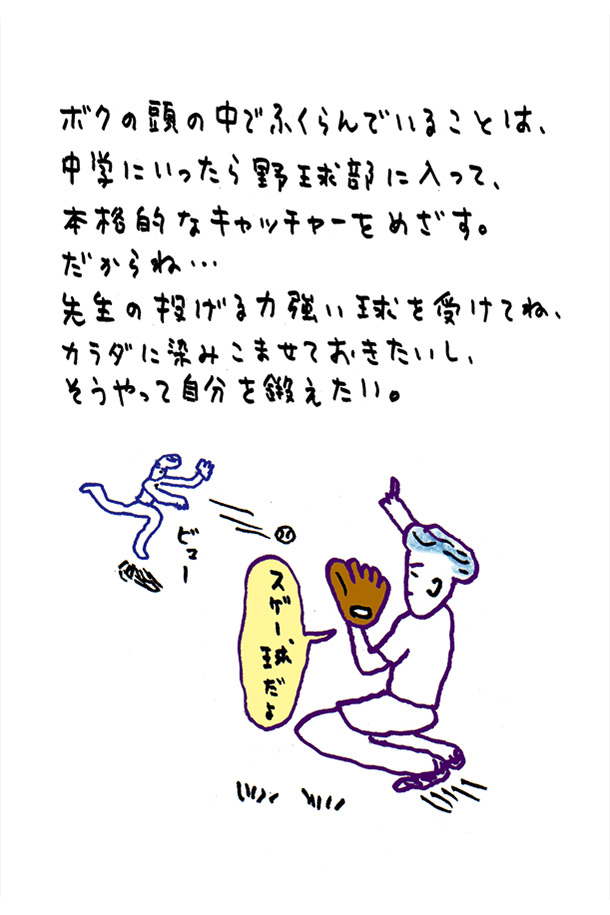 ボクの頭の中でふくらんでいることは、
中学にいったら野球部に入って、
本格的なキャッチャーをめざす。
だからね…
先生の投げる力強い球を受けてね、
カラダに染みこませておきたいし、
そうやって自分を鍛えたい。
ビュー
スゲー、
球だよ